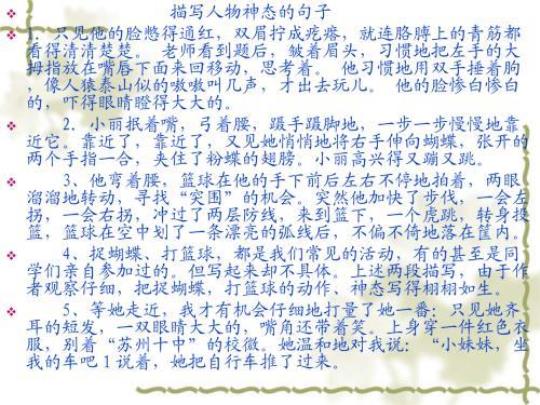 描写人物神态的句子
1. 只见他的脸憋得通红，双眉拧成疙瘩，就连胳膊上的青筋都
看得清清楚楚。 老师看到题后，皱着眉头，习惯地把左手的大
拇指放在嘴唇下面来回移动，思考着。 他习惯地用双手捶着胸
，像人猿泰山似的嗷嗷叫几声，才出去玩儿。 他的脸惨白惨白
的，吓得眼睛瞪得大大的。
2．小丽抿着嘴，弓着腰，蹑手蹑脚地，一步一步慢慢地靠
近它。靠近了，靠近了，又见她悄悄地将右手伸向蝴蝶，张开的
两个手指一合，夹住了粉蝶的翅膀。小丽高兴得又蹦又跳。
3、他弯着腰，篮球在他的手下前后左右不停地拍着，两眼
溜溜地转动，寻找“突围”的机会。突然他加快了步伐，一会左
拐，一会右拐，冲过了两层防线，来到篮下，一个虎跳，转身投
篮，篮球在空中划了一条漂亮的弧线后，不偏不倚地落在筐内。
4、捉蝴蝶、打篮球，都是我们常见的活动，有的甚至是同
学们亲自参加过的。但写起来却不具体。上述两段描写，由于作
者观察仔细，把捉蝴蝶、打篮球的动作、神态写得栩栩如生。
5、等她走近，我才有机会仔细地打量了她一番：只见她齐
耳的短发，一双眼睛大大的，嘴角还带着笑。上身穿一件红色衣
服，别着“苏州十中”的校徽。她温和地对我说：“小妹妹，坐
我的车吧１说着，她把自行车推了过来。